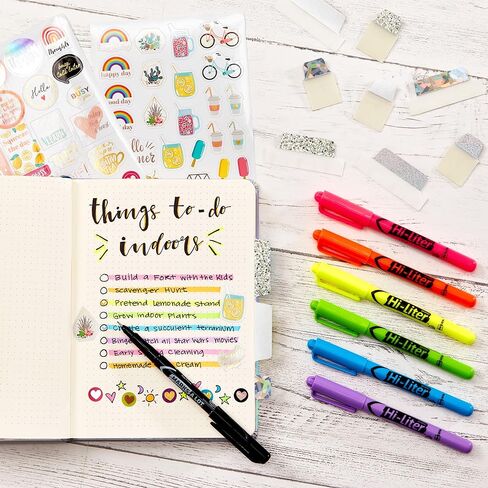 Hello
BUSY
happy day
good day
things to-do
indoors
Build a Fort with the kids
Scavenger Hunt
Pretend lemonade stand
Grow indoor plants
Create a succulent terranium
Binge watch all Star Wars movies
Early Cleaning
Homemade Cream
MARKS·A·LOT
Hi-Liter
Hi-Liter
Hi-Liter
Hi-Liter
Hi-Liter
Hi-Liter